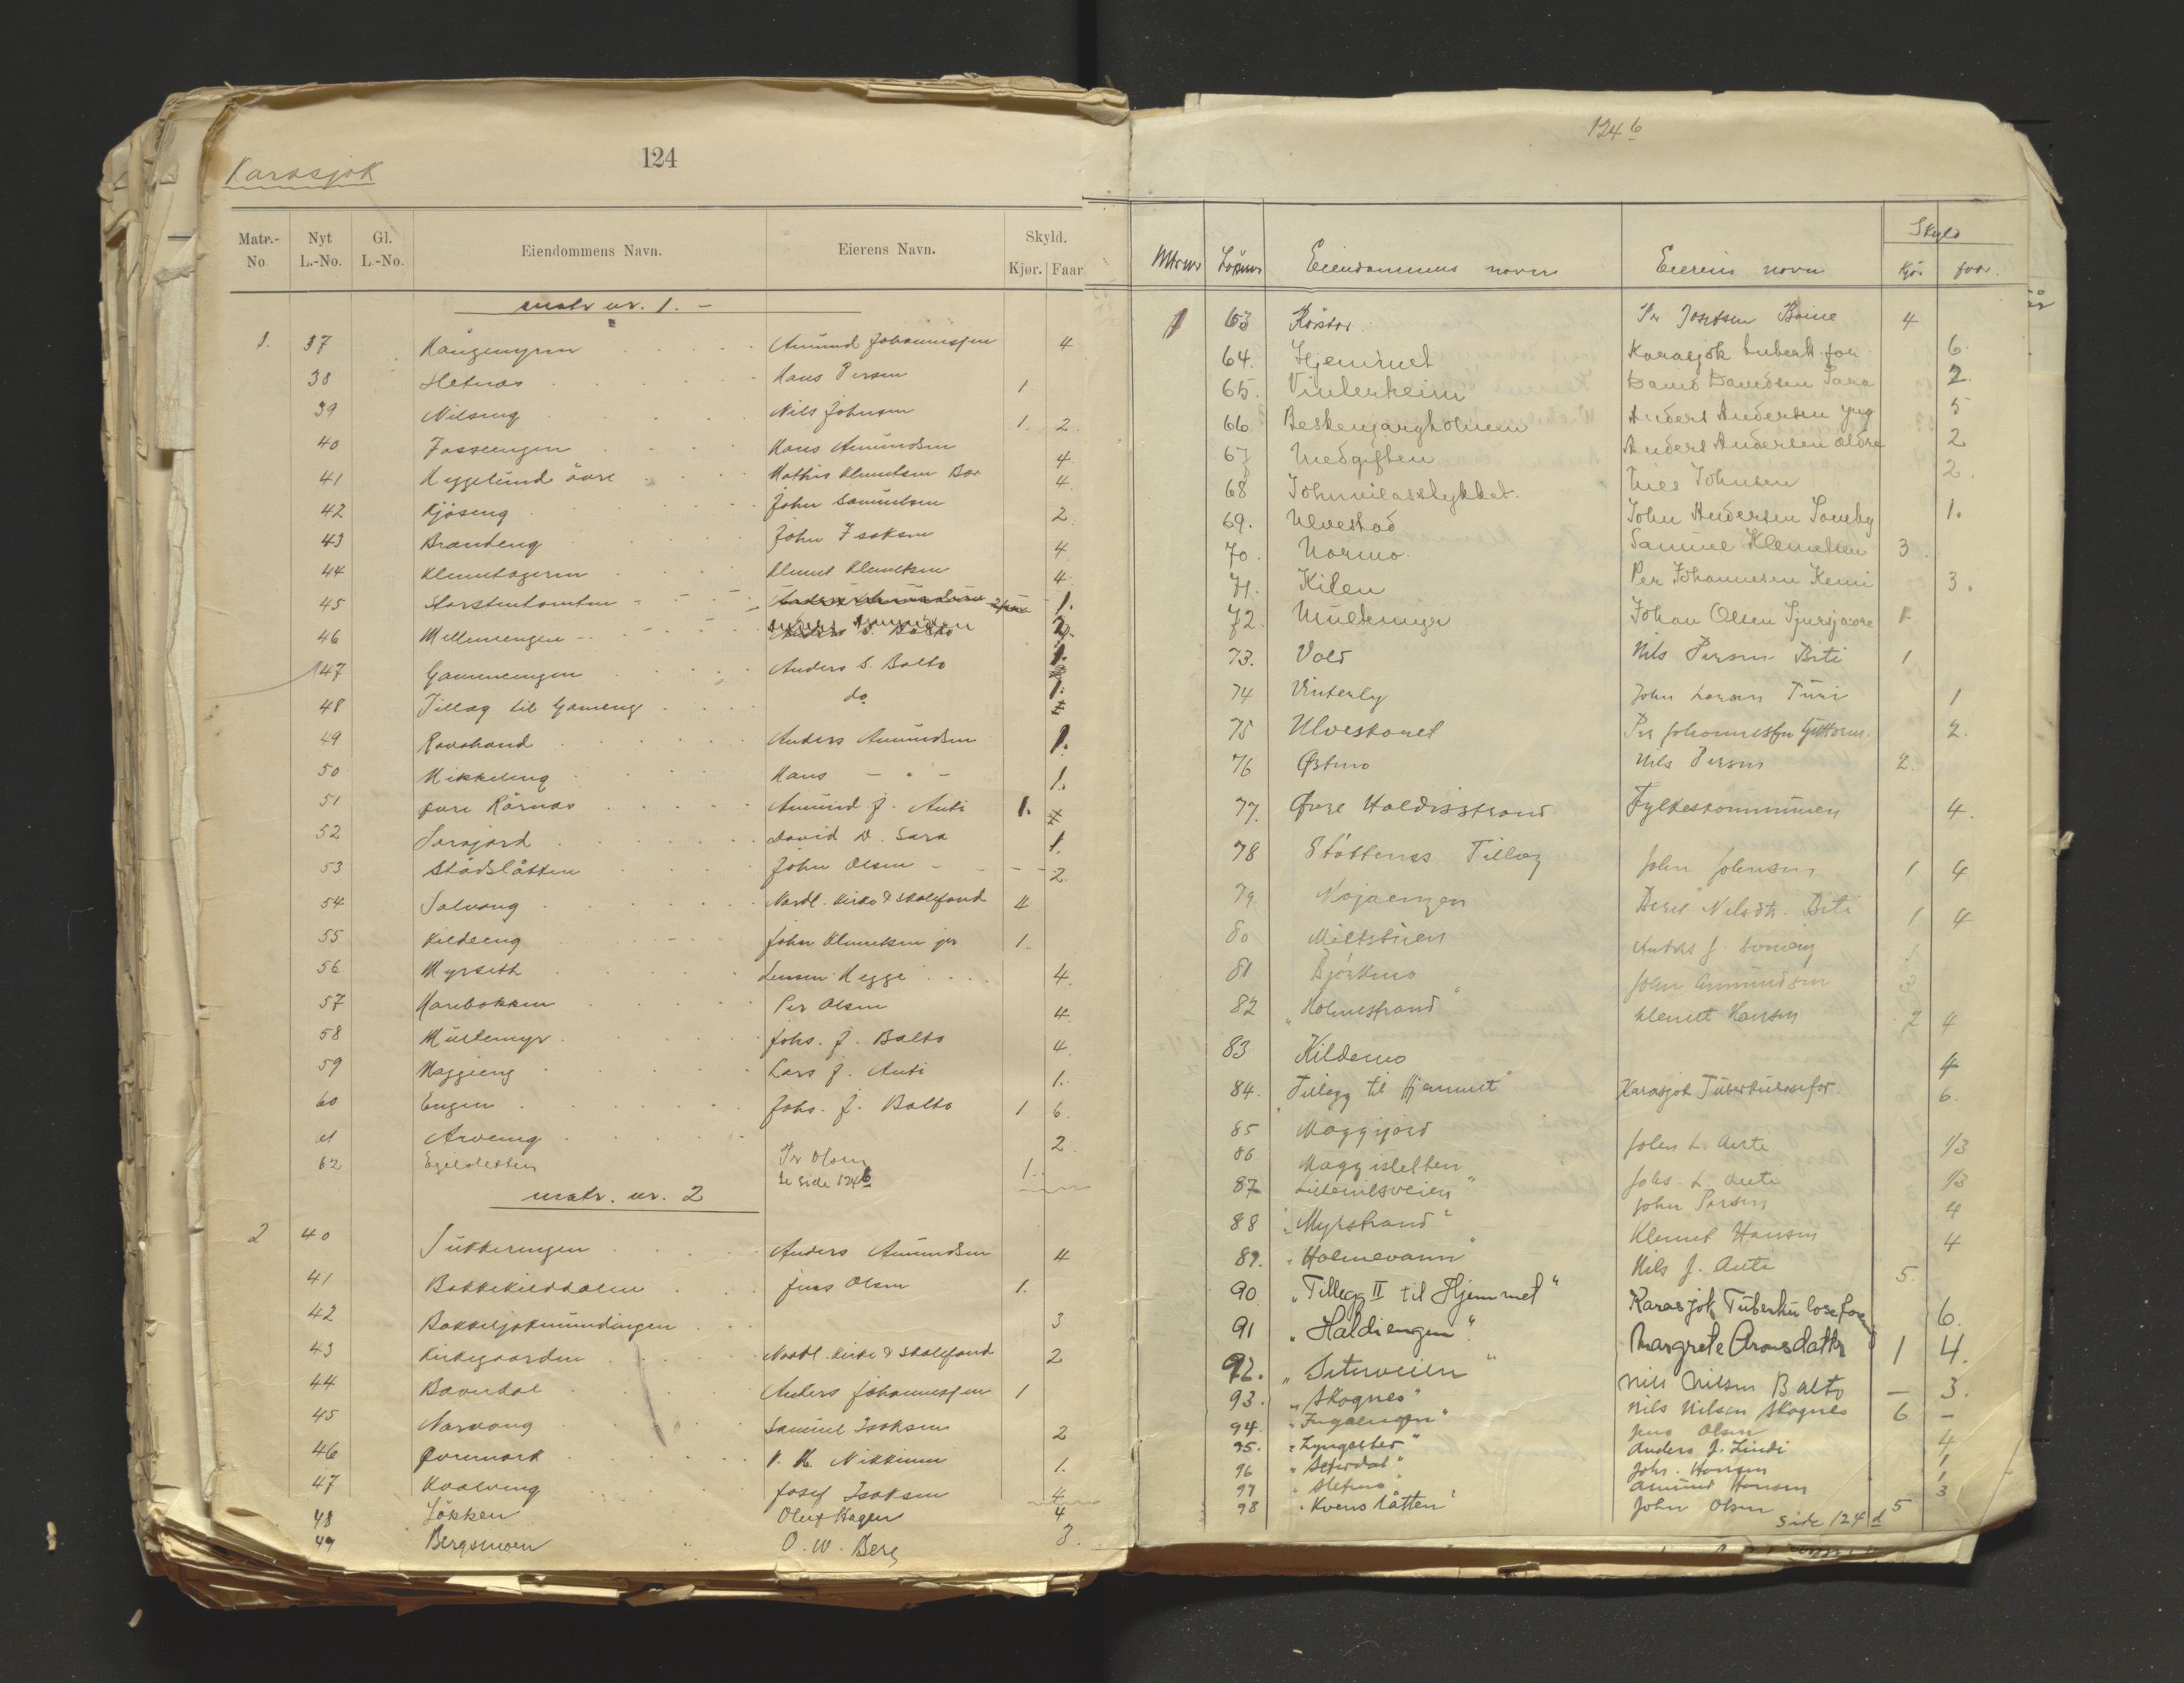 Karasjok
124
Matr.-No Nyt L.-No. Gl. L.-No. Eiendommens Navn. Eierens Navn. Skyld. Kjør. Faar
matr nr. 1. -
1. 37 Amund Johannessen 4
38 Hans Persen 1
39 Nilseng Nils Johnsen 1. 2
40 Hans Amundsen 4
41 Hyggelund övre Mathis Klemetsen 4
42 John Samuelsen 2
43 Branteng John Isaksen 4
44 Klemetageren Klemet Klemetsen 4
45 1.
46 Mellemengen
47 Gammeengen Anders S. Balto 1.
48 Tillæg til Gameng do 1.
49 Anders Amundsen 1.
50 Mikkeleng Hans - " - 1.
51 övre Rörnæs Amund J. Anti 1.
52 Sarajord David D. Sara 1.
53 John Olsen 2
54 Solvang Nordl. Kirke & Skolefond 4
55 Kildeeng John Klemetsen jr 1.
56 Myrseth Lensm. Hegge 4
57 Harebakken Per Olsen 4
58 Multemyr Johs. J. Balto 4
59 Maggieng Lars J. Anti 1.
60 Engen Johs. J. Balto 1 6
61 Arveeng 2
62 Per Olsen 1.
Se side 124b
matr. nr. 2
2 40 Anders Amundsen 4
41 Jens Olsen 1.
42 Bakkeljokmundingen 3
43 Kirkegaarden Nordl. Kirke & Skolefond 2
44 Baardal Anders Johannessen 1
45 Norvang Samuel Isaksen 2
46 1.
47 Josef Isaksen 4
48 Løkken Oluf Hagen 4
49 Bergsmoen O. W. Berg 3.
124 b
Eiendommens navn Eierens navn Skyld Kjör faar.
1 63 Per Josefsen 4
64. Hjemmet Karasjok tuberk. for 6
65. Vinterheim David Davidsen Sara 2.
66. Beskenjargholmen Anders Andersen yng 5
67 Medgiften Anders Andersen ældre 2
68 Nils Johnsen 2.
69. Ulvestad John Andersen Somby 1.
70. Normo Samuel Klemetsen 3
71. Kilen Per Johannesen Kemi 3.
72. Multemyr Johan Olsen 1
73. Vold Nils Persen Biti 1
74 Vinterly John Larsen Turi 1
75 Per Johannessen Guttorm. 2.
76 Østmo Nils Persen 2.
77. Øvre Haldisstrand Fylkeskommunen 4.
78 Tillæg John Johnsen 1 4
79 Nojaengen Berit Nilsdtr. Biti 1 4
80 Anders J.
81 Bjørkmo John Amundsen 3
82 "Holmestrand" Klemet Hansen 2 4
83 Kildemo 4
84. "Tillegg til Hjemmet" Karasjok Tuberkulosefor. 6.
85 Maggijord John L. Anti 1/3
86 Maggisletten Johs. L. Anti 1/3
87 John Persen 4
88 "Myrstrand" Klemet Hansen 4
89. "Holmevann" Nils J. Anti 5.
90 "Tillegg II til Hjemmet" Karasjok Tuberkulosefor 6.
91 "Haldiengen". Margrete Aronsdatter 1 4.
92. "Seterveien" Nils Nilsen Balto - 3.
93. "Skognes" Nils Nilsen Skognes 6 -
94. Jens Olsen 4
95. Anders J. 1
96 Johs. Hansen 1
97 Amund Hansen 3
98 John Olsen 5
Side 124 d